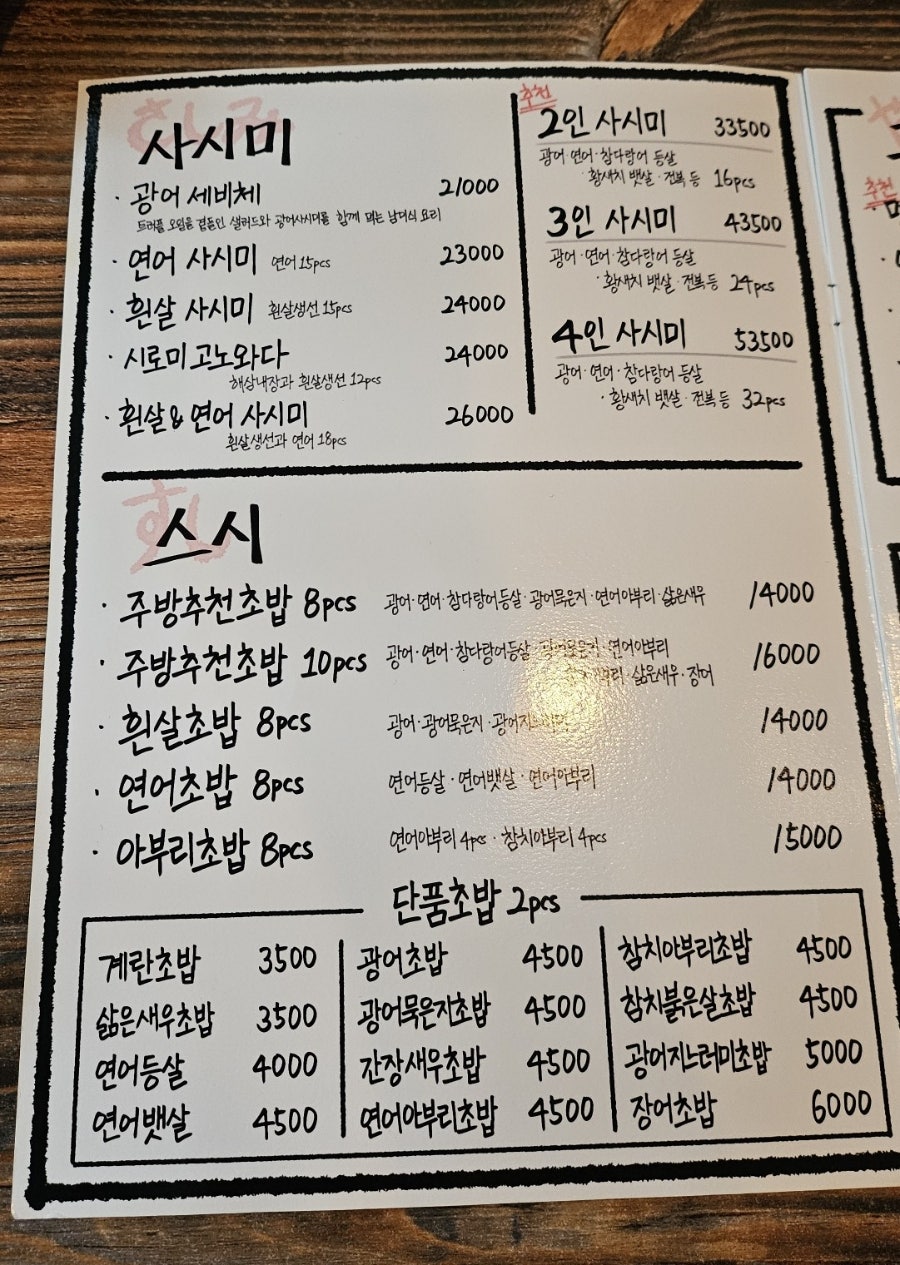 사시미
· 광어 세비체 21000
트러플 오일을 곁들인 샐러드와 광어사시미를 함께 먹는 남미식 요리
· 연어 사시미 연어 15pcs 23000
· 흰살 사시미 흰살생선 15pcs 24000
· 시로미 고노와다 24000
해삼내장과 흰살생선 12pcs
· 흰살&연어 사시미 26000
흰살생선과 연어 18pcs
추천
2인 사시미 33500
광어·연어·참다랑어 등살
·황새치 뱃살·전복 등 16pcs
3인 사시미 43500
광어·연어·참다랑어 등살
·황새치 뱃살·전복 등 24pcs
4인 사시미 53500
광어·연어·참다랑어 등살
·황새치 뱃살·전복 등 32pcs
스시
· 주방추천초밥 8pcs 광어·연어·참다랑어등살·광어묵은지·연어아부리·삶은새우 14000
· 주방추천초밥 10pcs 광어·연어·참다랑어등살·광어묵은지·연어아부리 16000
삶은새우·장어
· 흰살초밥 8pcs 광어·광어묵은지 14000
· 연어초밥 8pcs 연어등살·연어뱃살·연어아부리 14000
· 아부리초밥 8pcs 연어아부리 4pcs·참치아부리 4pcs 15000
단품초밥 2pcs
계란초밥 3500
삶은새우초밥 3500
연어등살 4000
연어뱃살 4500
광어초밥 4500
광어묵은지초밥 4500
간장새우초밥 4500
연어아부리초밥 4500
참치아부리초밥 4500
참치붉은살초밥 4500
광어지느러미초밥 5000
장어초밥 6000
추천